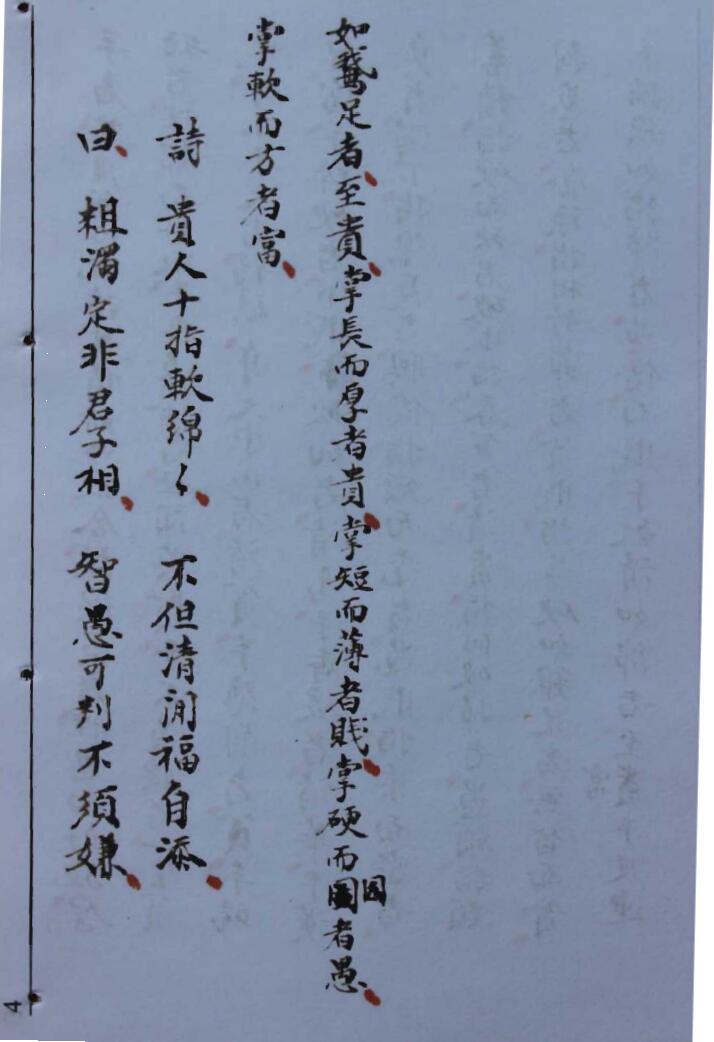 如鵞足者、至貴、掌長而厚者貴、掌短而薄者賎、掌硬而圓者愚、
掌軟而方者富、
詩 貴人十指軟綿〻、 不但清閒福自添、
曰、 粗濁定非君子相、 智愚可判不須嫌、
4